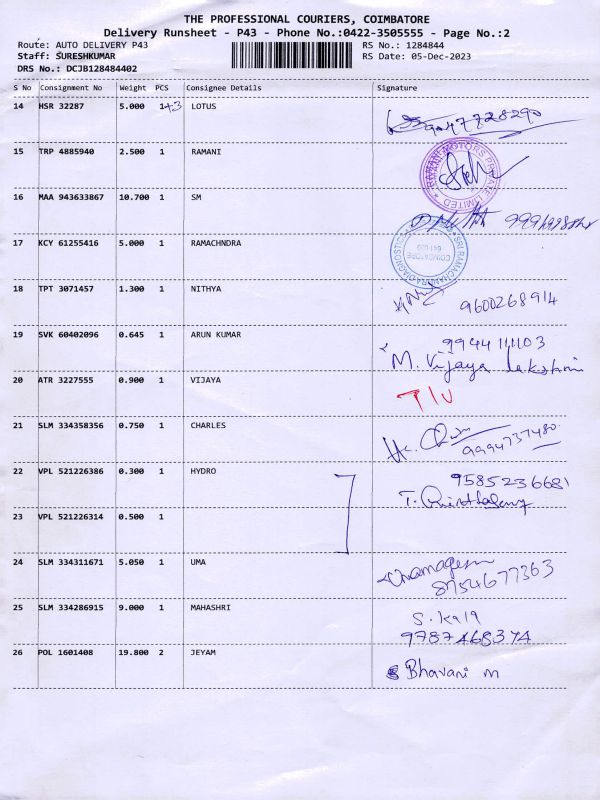 THE PROFESSIONAL COURIERS, COIMBATORE
Delivery Runsheet - P43 - Phone No.:0422-3505555 - Page No.:2
Route: AUTO DELIVERY P43 RS No.: 1284844
Staff: SURESHKUMAR RS Date: 05-Dec-2023
DRS No.: DCJB128484402
S No Consignment No Weight PCS Consignee Details Signature
14 HSR 32287 5.000 LOTUS
9047728290
15 TRP 4885940 2.500 1 RAMANI
RAMANI MOTORS PRIVATE LIMITED
16 MAA 943633867 10.700 1 SM
17 KCY 61255416 5.000 1 RAMACHNDRA
SRI RAMACHANDRA DIAGNOSTICS
COIMBATORE
18 TPT 3071457 1.300 1 NITHYA
9600268914
19 SVK 60402096 0.645 1 ARUN KUMAR
9944111103
M. Vijaya lakshmi
20 ATR 3227555 0.900 1 VIJAYA
21 SLM 334358356 0.750 1 CHARLES
9994737480
22 VPL 521226386 0.300 1 HYDRO
9585236681
23 VPL 521226314 0.500 1
24 SLM 334311671 5.050 1 UMA
8754677363
25 SLM 334286915 9.000 1 MAHASHRI
S. Kala
9787468374
26 POL 1601408 19.800 2 JEYAM
Bhavani m